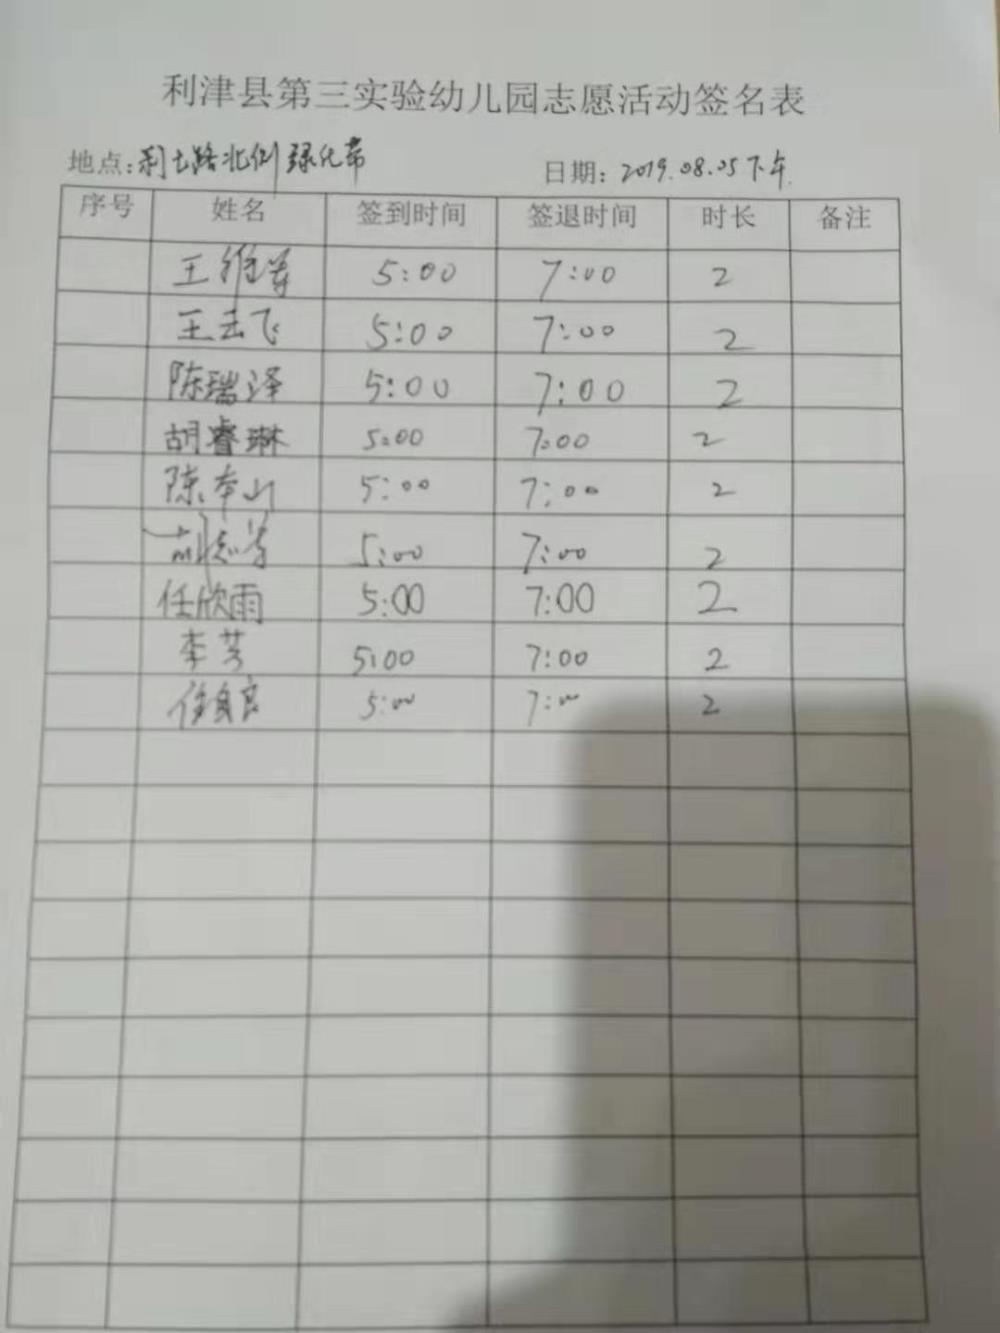 利津县第三实验幼儿园志愿活动签名表
地点:利七路北侧绿化带 日期:2019.08.05下午.
序号 姓名 签到时间 签退时间 时长 备注
王维 5:00 7:00 2
王云飞 5:00 7:00 2
陈瑞泽 5:00 7:00 2
胡睿琳 5:00 7:00 2
陈本山 5:00 7:00 2
5:00 7:00 2
任欣雨 5:00 7:00 2
李芳 5:00 7:00 2
5:00 7:00 2